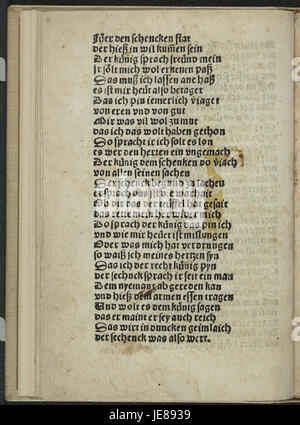 Für den schencken star
der hieß in wil kum̃en sein
Der künig sprach freünd mein
jr sölt mich wol erkenen paß
Das muß ich lassen ane haß
es ist mir heüt also betaget
Das ich pin iemerlich v̈iaget
von eren vnd von gut
Mir was vil wol zu mut
das ich das wolt haben gethon
So sprach ir ich solt es lon
es wer den herzen ein vngemach
Der künig dem schencken do v̈iach
von allen seinen sachen
Der schenck begund zu lachen
er sprach
Ob dir das der teüffel hat gesait
das
Do sprach der künig das pin ich
vnd wie mir heüt ist mißlungen
Oder was mich hat verdrungen
so waiß ich meines hertzen syn
Das ich der recht künig pyn
der schenck sprach ir seit ein man
Dem nyemant ab gereden kan
vnd hieß dem armen essen tragen
Vnd wolt es dem künig sagen
das er maint er sey auch reich
Das wirt in duncken gemlaich
der schenck was also wert.
alamy
JE8939
www.alamy.com